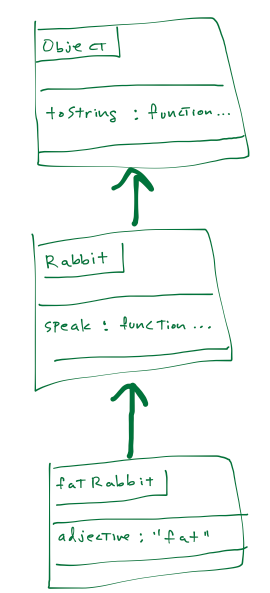 Object
toString : function...
Rabbit
speak : function...
fatRabbit
adjective : "fat"